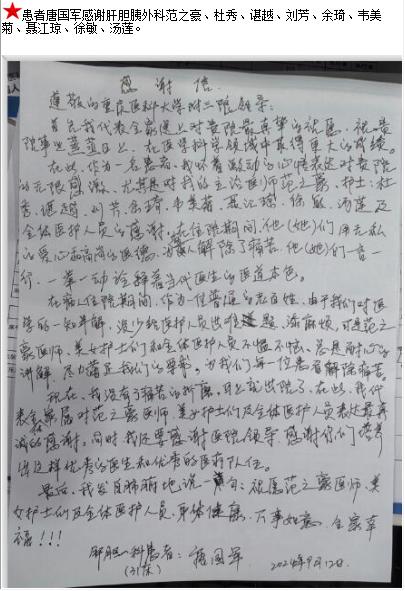 患者唐国军感谢肝胆胰外科范之豪、杜秀、谌越、刘芳、余琦、韦美
菊、聂江琼、徐敏、汤莲。
感谢信
尊敬的重庆医科大学附二院领导:
首先我代表全家送上对贵院最真挚的祝愿,祝贵
院事业蒸蒸日上,在医学科学领域中取得更大的成绩。
在此,作为一名患者,我怀着激动的心情表达对贵院
的无限感激,尤其是对我的主治医师范之豪、护士:杜
秀、谌越、刘芳、余琦、韦美菊、聂江琼、徐敏、汤莲及
全体医护人员的感谢,在住院期间,他(她)们用无私
的爱心和高尚的医德,为病人解除了痛苦,他(她)们一言一
行、一举一动诠释着当代医生的医道本色。
在病人住院期间,作为一位普通的老百姓,由于我们对医
学的一知半解,没少给医护人员出难题,添麻烦,可是范之
豪医师、美女护士们和全体医护人员不愠不恼,总是耐心的
讲解,尽力满足我们的要求,为我们每一位患者解除痛苦。
现在,我没有了病痛的折磨,马上就出院了,在此,我代
表全家属对范之豪医师、美女护士们及全体医护人员表达最真
诚的感谢,同时我还要感谢医院领导,感谢你们培养
出这样优秀的医生和优秀的医疗队伍。
最后,我发自肺腑地说一句:祝愿范之豪医师、美
女护士们及全体医护人员,身体健康,万事如意,全家幸
福!!!
肝胆一科患者:唐国军 2024年9月12日
(31床)